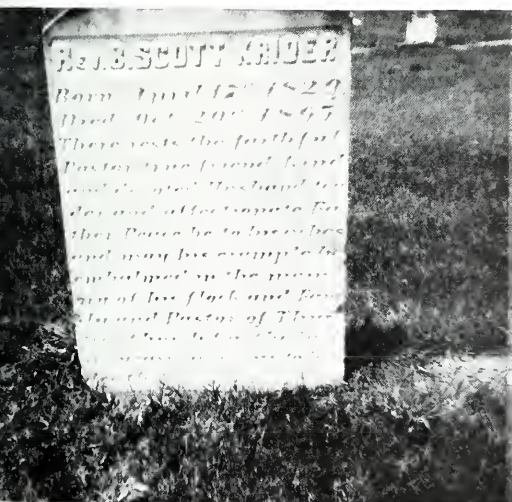 Rev. B. SCOTT KRIDER
Born April 12th 1829
Died Oct. 29th 1897
There rests the faithful
Pastor true friend kind
and devoted Husband ten
der and affectionate Fa
ther Peace be to his ashes
and may his example be
embalmed in the mem
ory of his flock and Fam
ily and Pastor of Thya